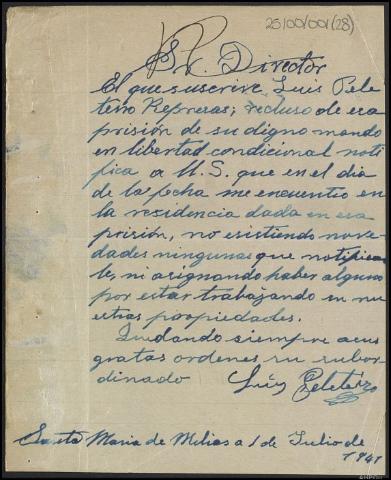 25/00/001(28)
Sr. Director
El que suscrive, Luis Pele
teiro Represas; recluso de esa
prisión de su digno mando
en libertad condicional noti
fica a U.S. que en el dia
de la fecha me encuentro en
la residencia dada en esa
prisión, no esistiendo nove
dades ningunas que notificar
le, ni asignando haber alguno
por estar trabajando en nu
estras propiedades.
Quedando siempre a sus
gratas ordenes su subor
dinado Luis Peleteiro
Santa Maria de Melias a 1 de Julio de
1941